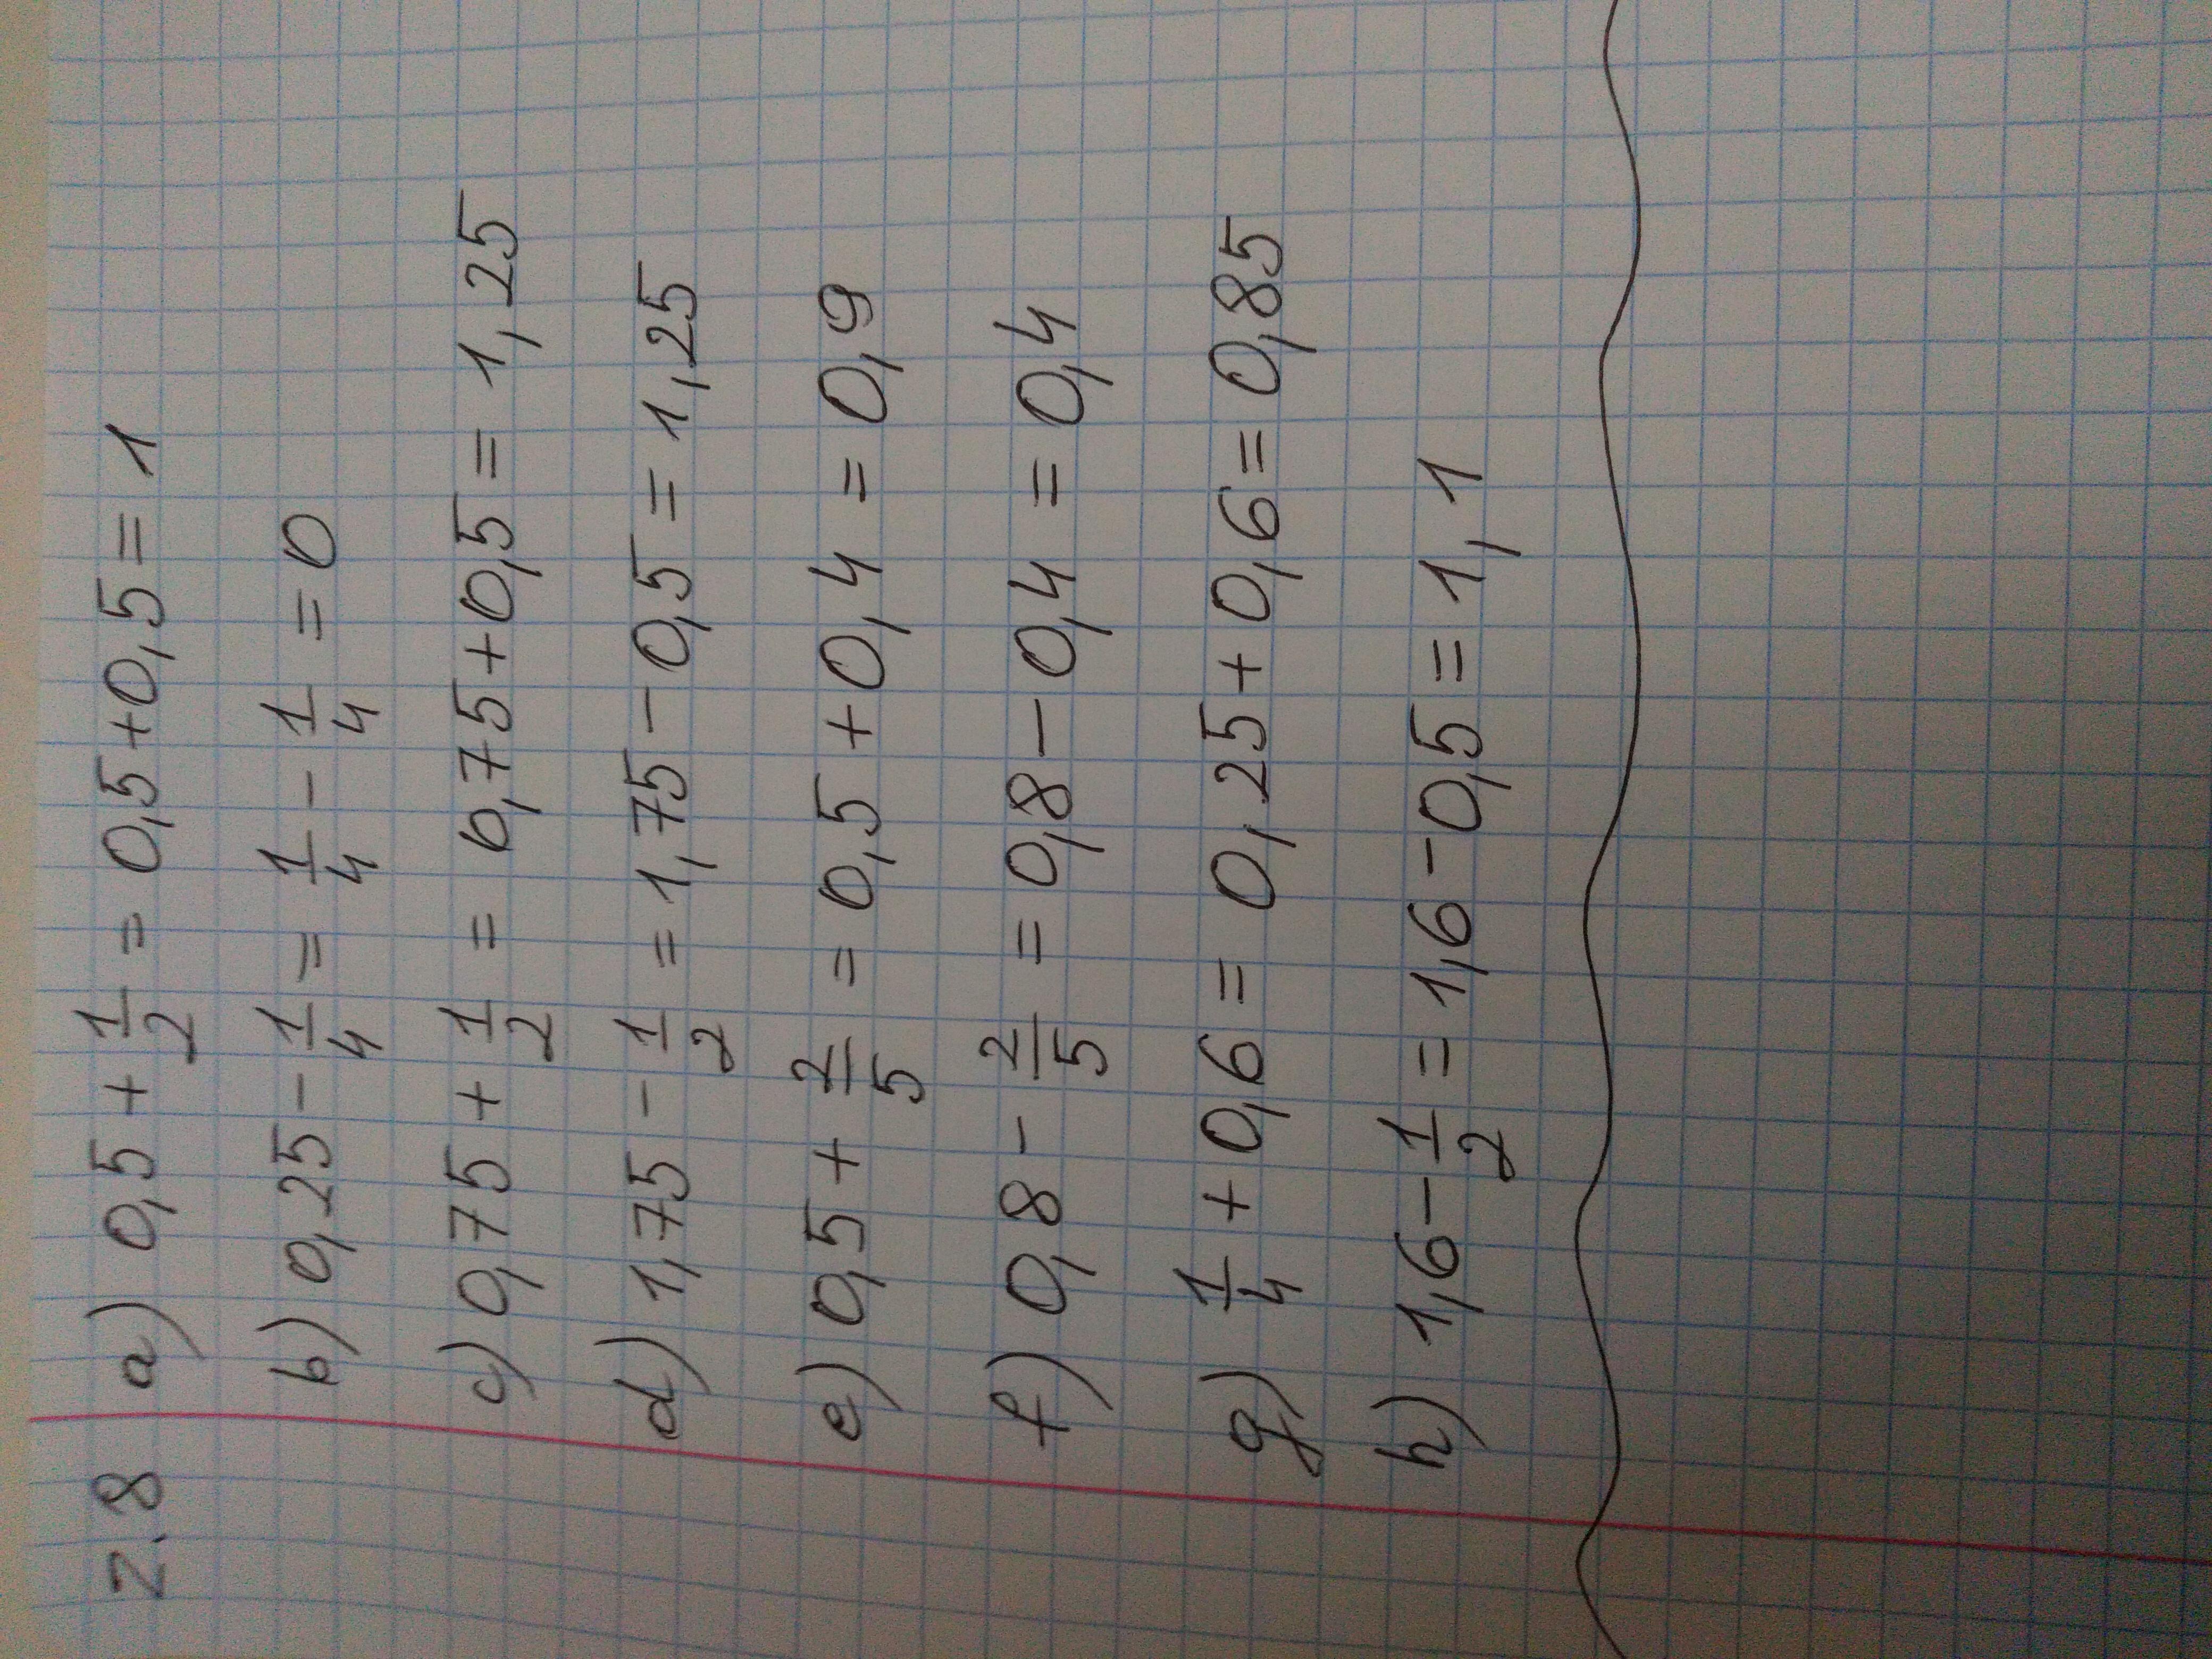 2.8 a) 0,5 + 1/2 = 0,5 + 0,5 = 1
b) 0,25 - 1/4 = 1/4 - 1/4 = 0
c) 0,75 + 1/2 = 0,75 + 0,5 = 1,25
d) 1,75 - 1/2 = 1,75 - 0,5 = 1,25
e) 0,5 + 2/5 = 0,5 + 0,4 = 0,9
f) 0,8 - 2/5 = 0,8 - 0,4 = 0,4
g) 1/4 + 0,6 = 0,25 + 0,6 = 0,85
h) 1,6 - 1/2 = 1,6 - 0,5 = 1,1